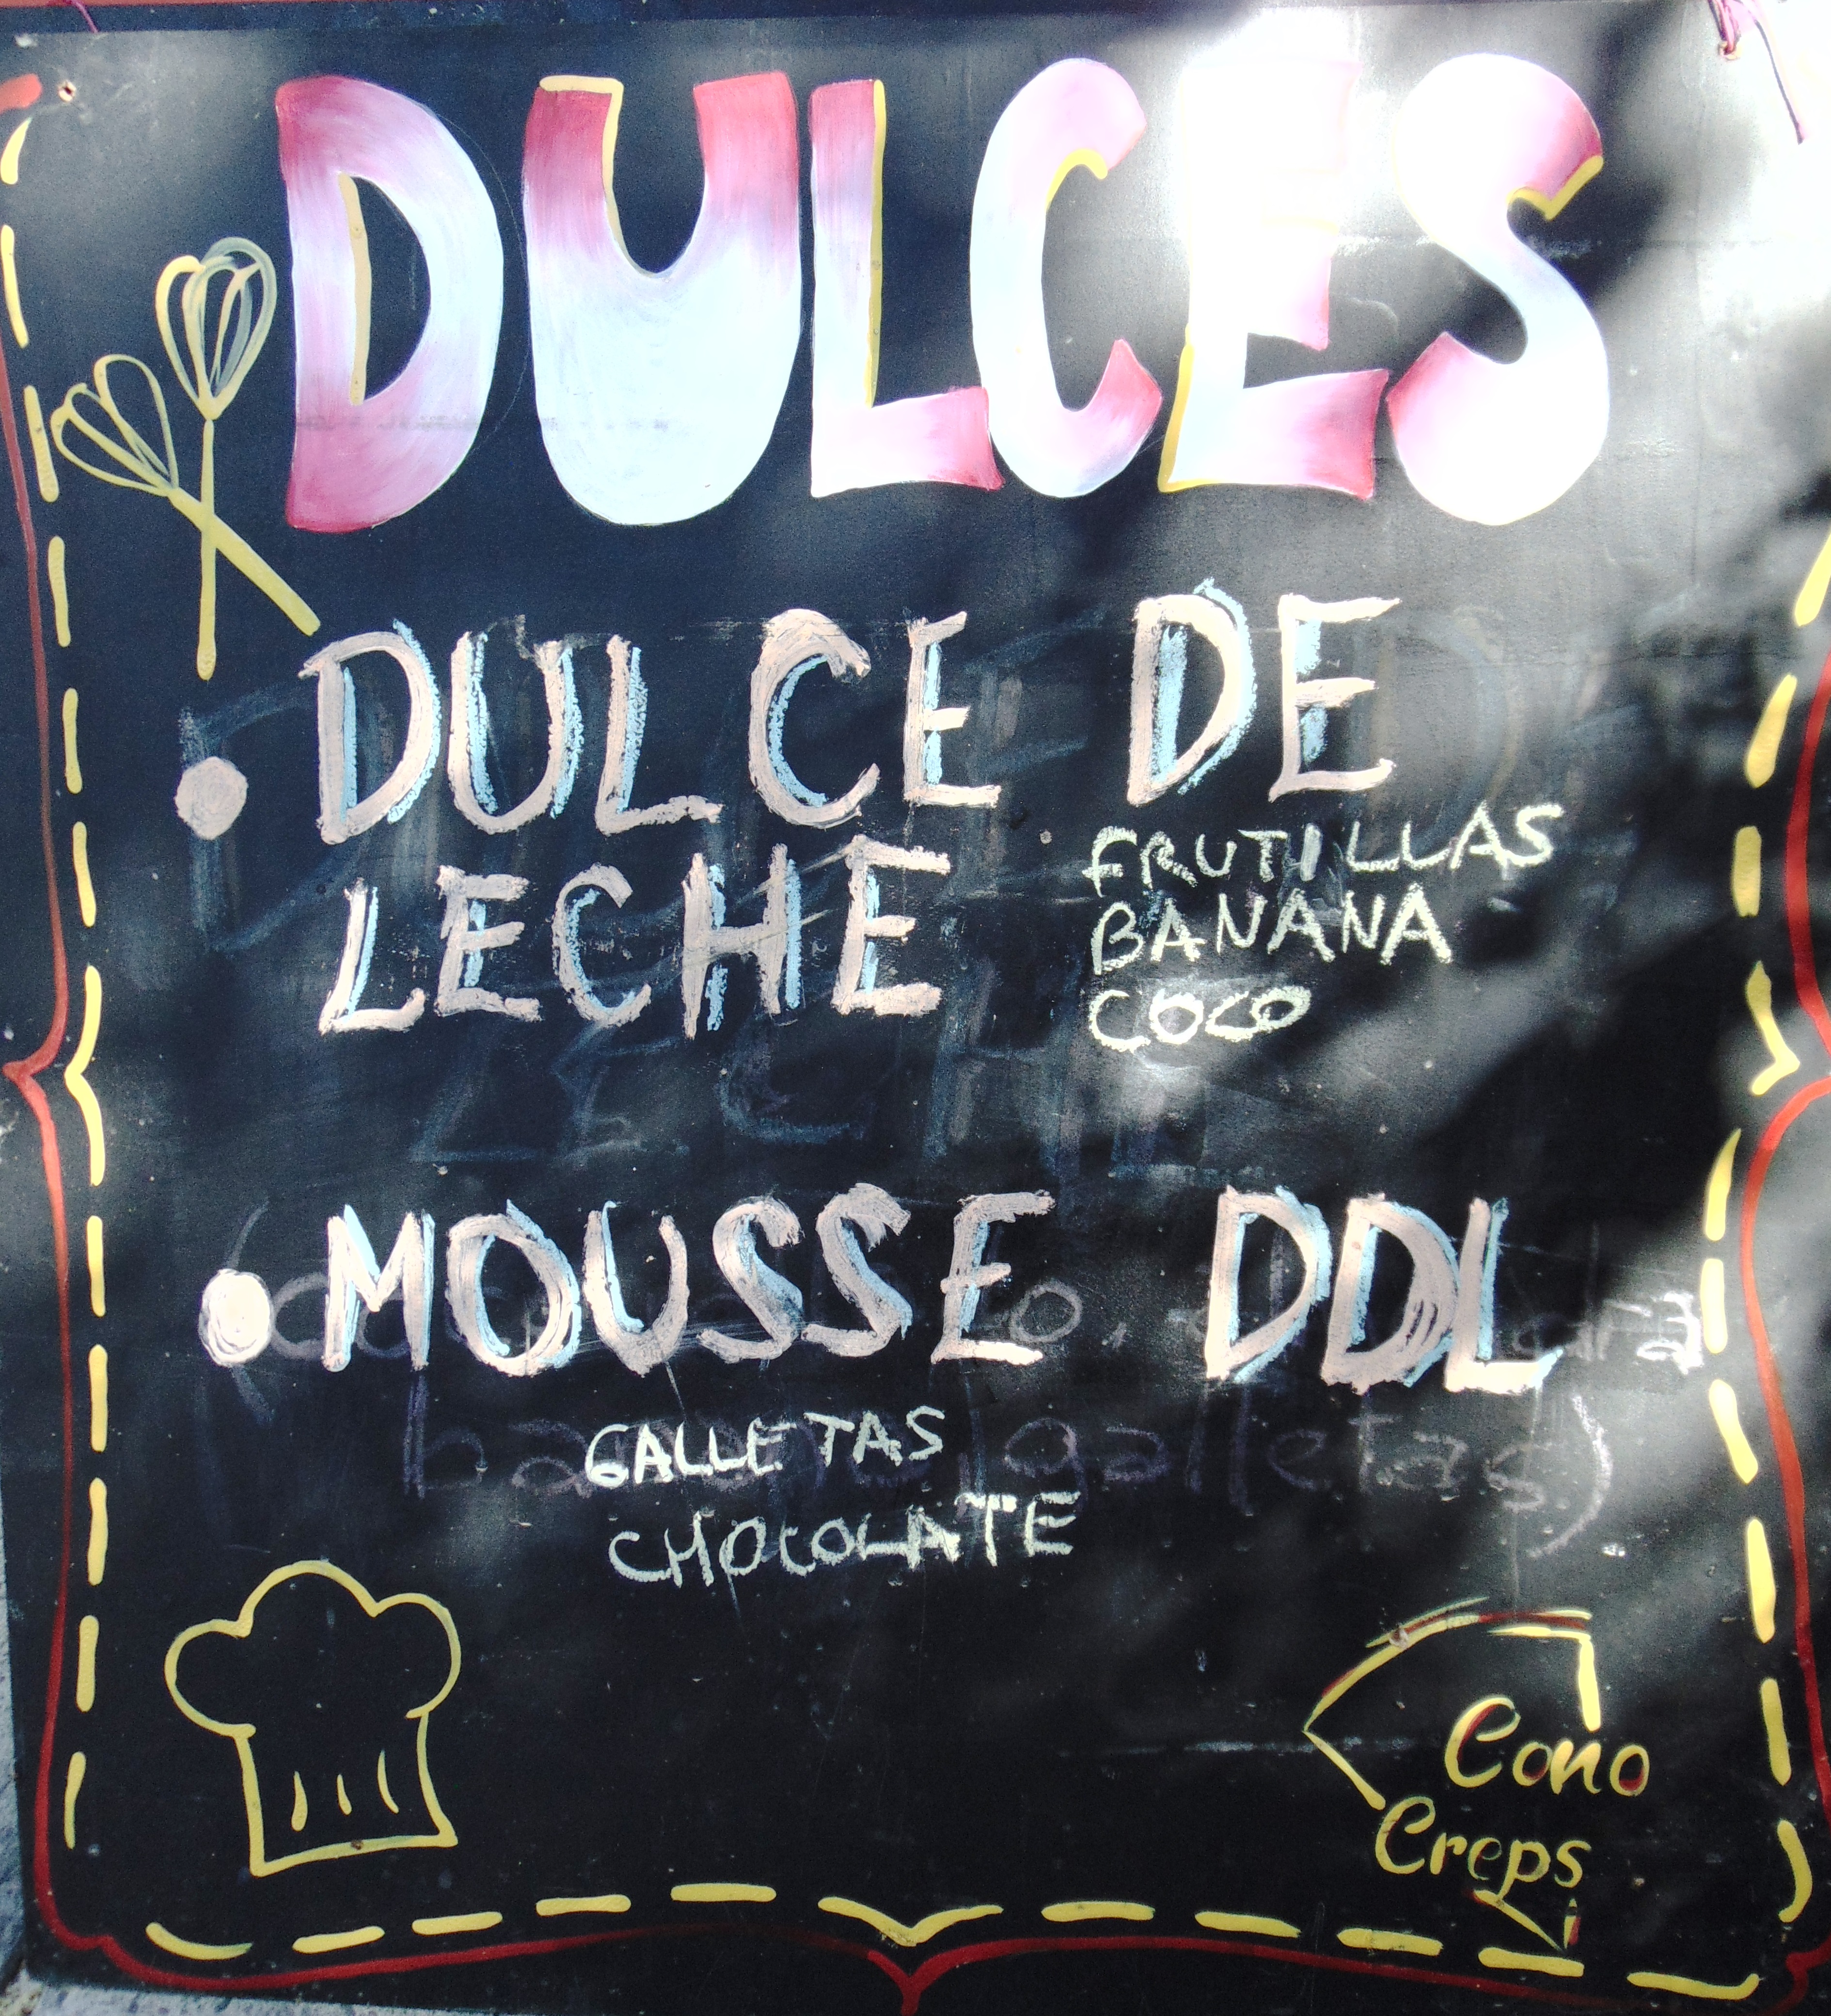 DULCES
DULCE DE
LECHE
FRUTILLAS
BANANA
COCO
MOUSSE DDL
GALLETAS
CHOCOLATE
galletas)
Cono
Creps